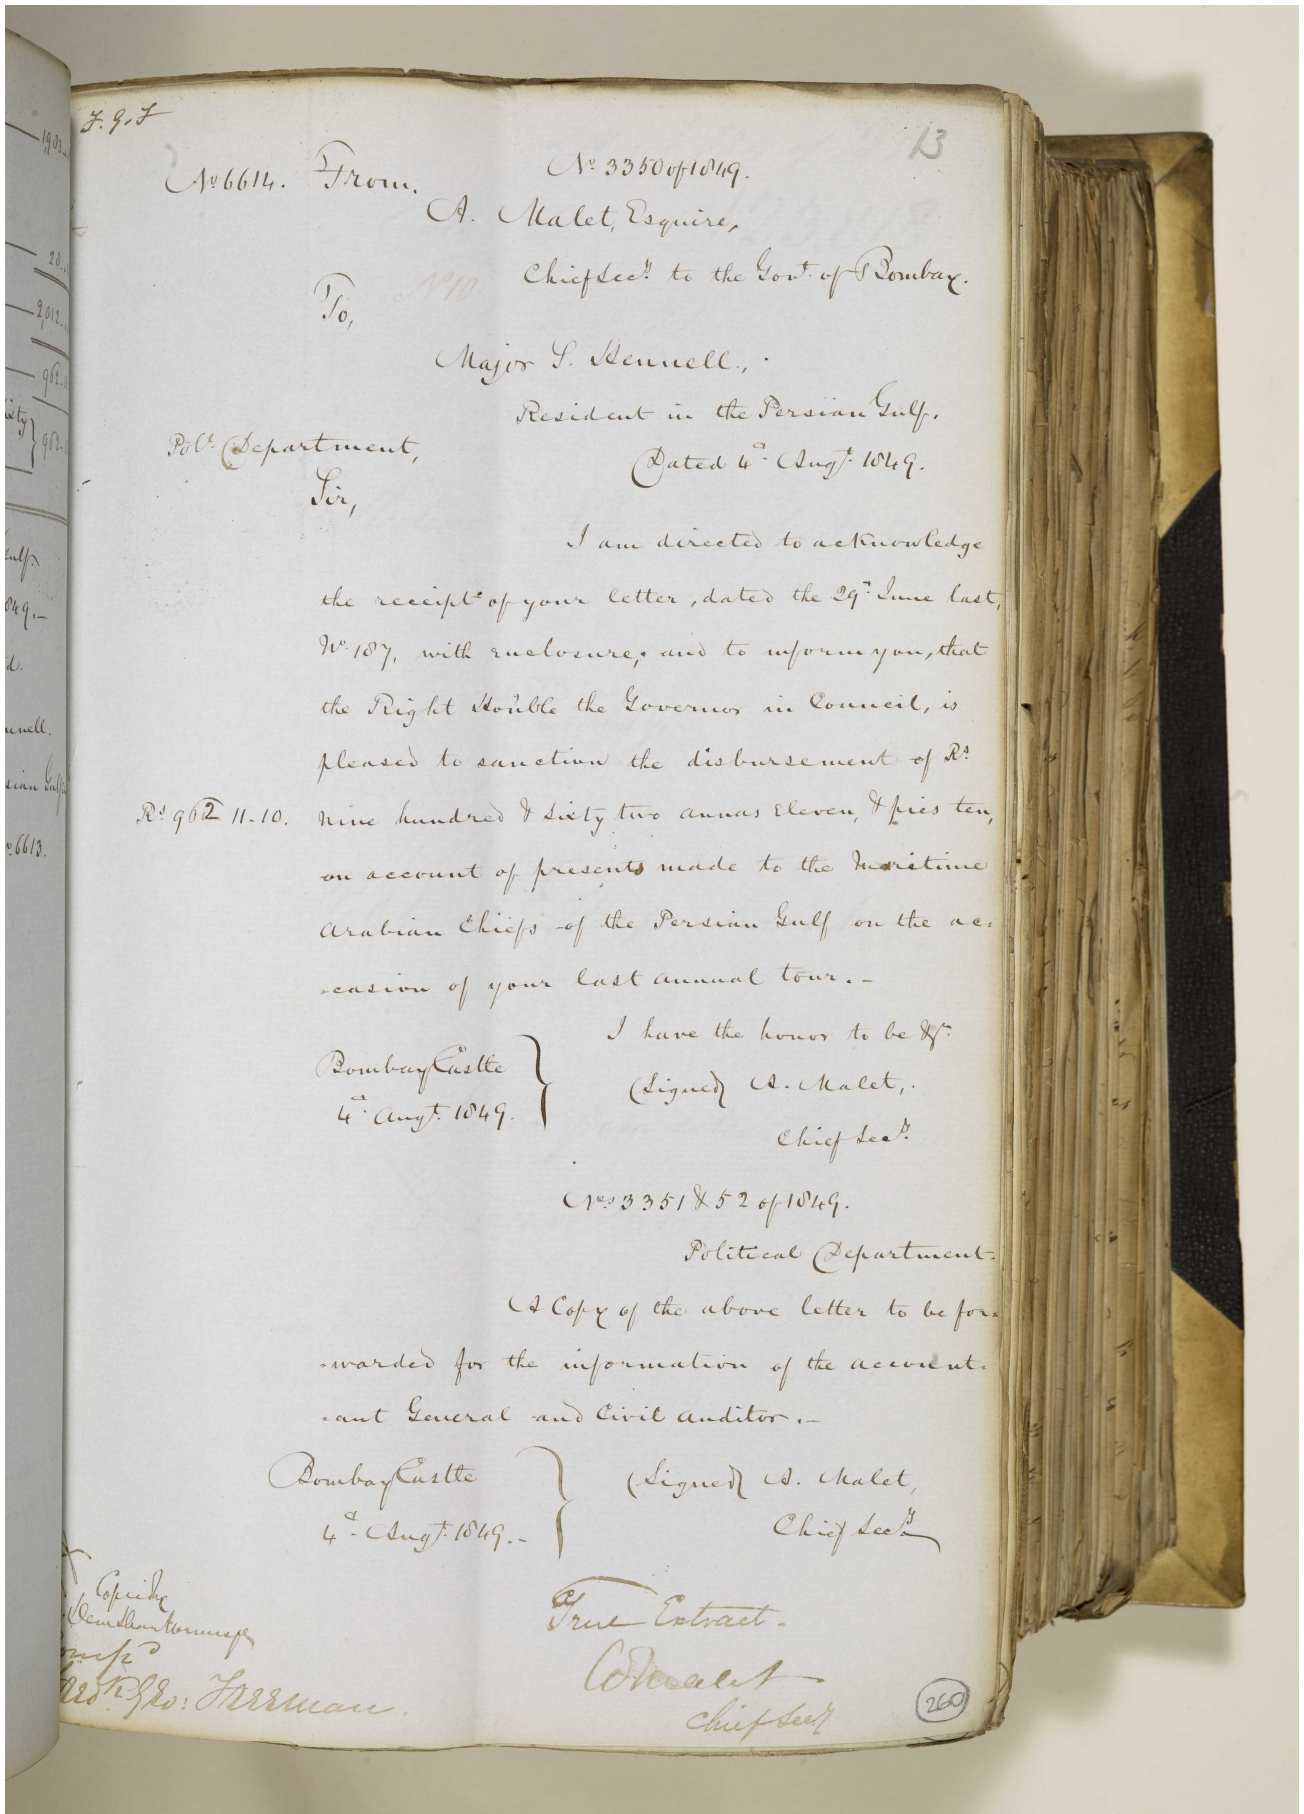 F. G. F
13
No 6614. From. No 3350 of 1849.
A. Malet, Esquire,
Chief Secy. to the Govt. of Bombay.
To,
Major S. Hennell.,
Resident in the Persian Gulf.
Poll. Department,
Dated 4th Augt. 1849.
Sir,
I am directed to acknowledge
the receipt of your letter, dated the 29th June last,
No. 187, with enclosure, and to inform you, that
the Right Honble the Governor in Council, is
pleased to sanction the disbursement of Rs.
Rs. 962 11-10. nine hundred & sixty two annas eleven, & pies ten,
on account of presents made to the Maritime
Arabian Chiefs of the Persian Gulf on the oc-
-casion of your last annual tour.-
I have the honor to be &c.
Bombay Castle
4th Augt. 1849.
(Signed) A. Malet,
Chief Secy.
Nos 3351 & 52 of 1849.
Political Department.
A Copy of the above letter to be for-
-warded for the information of the account-
-ant General and Civil Auditor.-
Bombay Castle
4th Augt. 1849.-
(Signed) A. Malet,
Chief Secy.
True Extract.
A Malet
Chief Secy
Geo: Freeman.
260
1983
20
2,012
962
962
1849.-
d.
No. 6613.